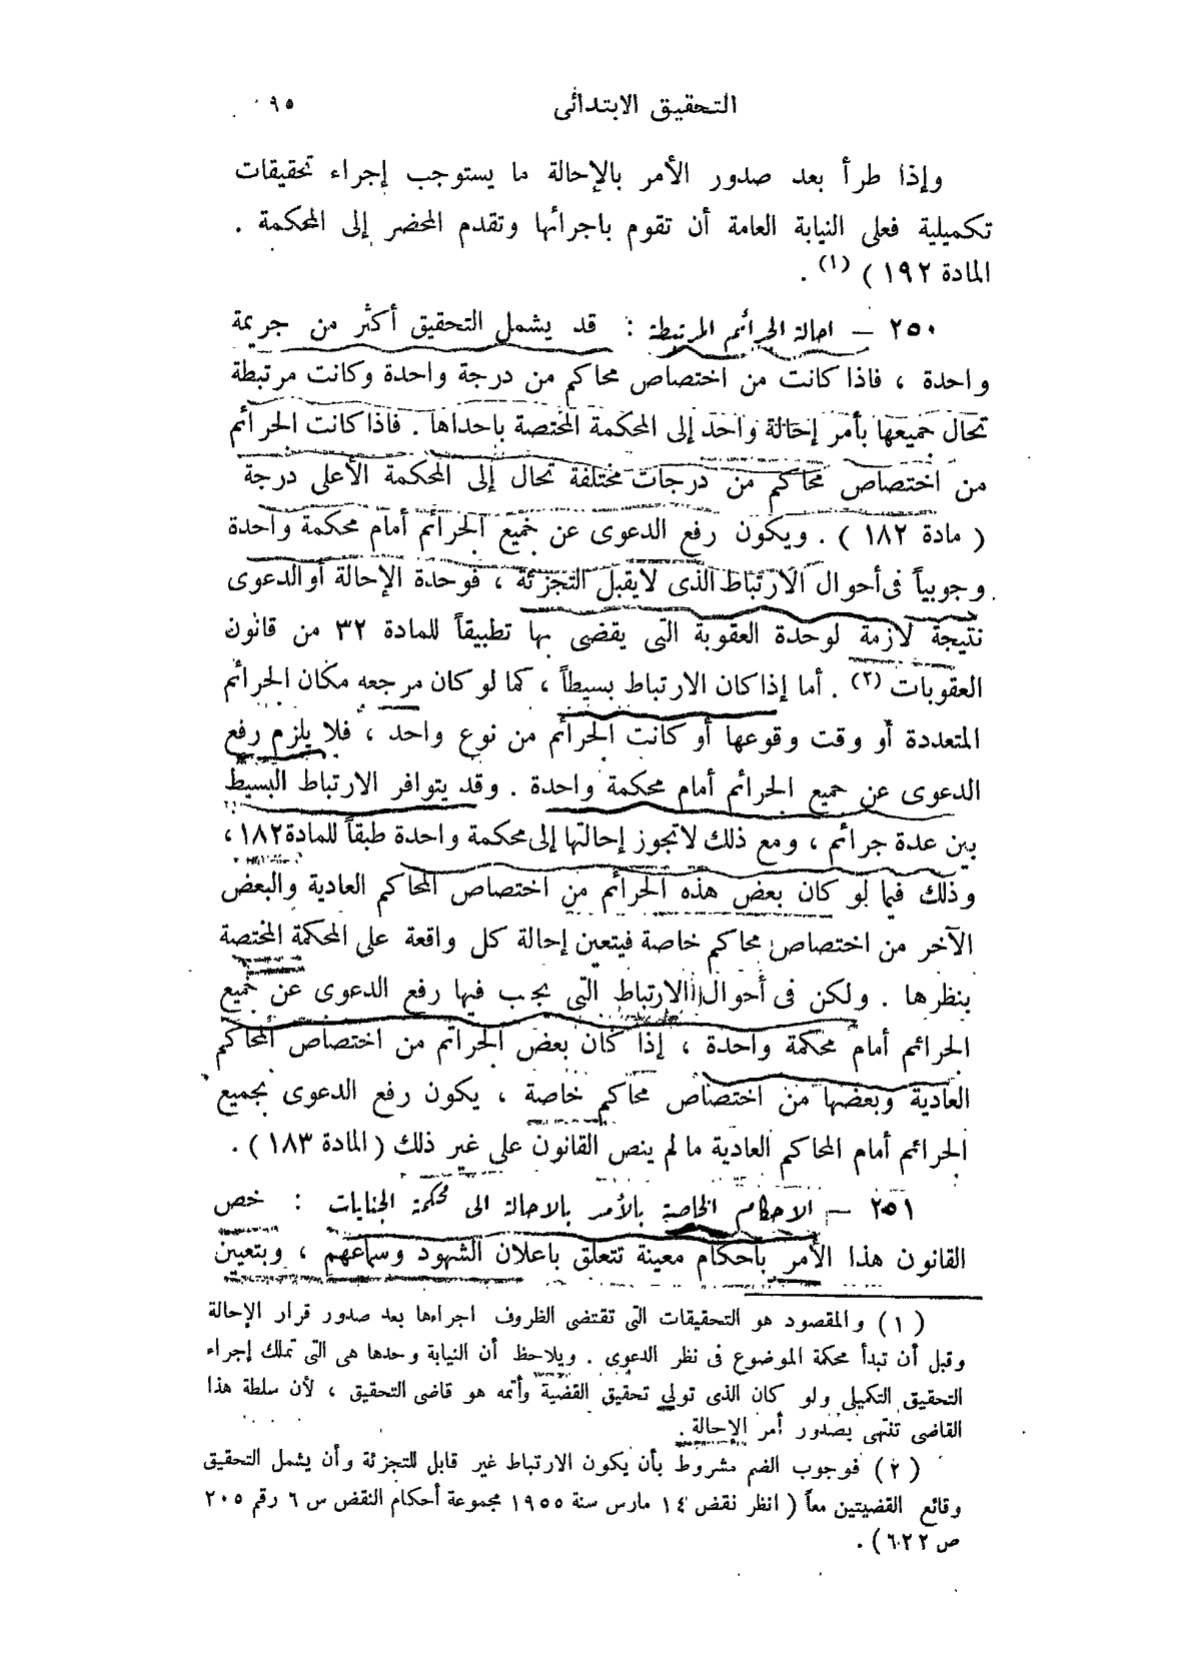 التحقيق الابتدائى ٩٥
وإذا طرأ بعد صدور الأمر بالإحالة ما يستوجب إجراء تحقيقات
تكميلية فعلى النيابة العامة أن تقوم باجرائها وتقدم المحضر إلى المحكمة .
المادة ١٩٢ ) (١) .
٢٥٠ — احالة الجرائم المرتبطة : قد يشمل التحقيق أكثر من جريمة
واحدة ، فاذا كانت من اختصاص محاكم من درجة واحدة وكانت مرتبطة
تحال جميعها بأمر إحالة واحد إلى المحكمة المختصة باحداها . فاذا كانت الجرائم
من اختصاص محاكم من درجات مختلفة تحال إلى المحكمة الأعلى درجة
( مادة ١٨٢ ) . ويكون رفع الدعوى عن جميع الجرائم أمام محكمة واحدة
وجوبياً فى أحوال الارتباط الذى لا يقبل التجزئة ، فوحدة الإحالة أو الدعوى
نتيجة لازمة لوحدة العقوبة التى يقضى بها تطبيقاً للمادة ٣٢ من قانون
العقوبات (٢) . أما إذا كان الارتباط بسيطاً ، كما لو كان مرجعه مكان الجرائم
المتعددة أو وقت وقوعها أو كانت الجرائم من نوع واحد ، فلا يلزم رفع
الدعوى عن جميع الجرائم أمام محكمة واحدة . وقد يتوافر الارتباط البسيط
بين عدة جرائم ، ومع ذلك لا تجوز إحالتها إلى محكمة واحدة طبقاً للمادة ١٨٢ ،
وذلك فيما لو كان بعض هذه الجرائم من اختصاص المحاكم العادية والبعض
الآخر من اختصاص محاكم خاصة فيتعين إحالة كل واقعة على المحكمة المختصة
بنظرها . ولكن فى أحوال الارتباط التى يجب فيها رفع الدعوى عن جميع
الجرائم أمام محكمة واحدة ، إذا كان بعض الجرائم من اختصاص المحاكم
العادية وبعضها من اختصاص محاكم خاصة ، يكون رفع الدعوى بجميع
الجرائم أمام المحاكم العادية ما لم ينص القانون على غير ذلك ( المادة ١٨٣ ) .
٢٥١ — الاحكام الخاصة بالأمر بالاحالة الى محكمة الجنايات : خص
القانون هذا الأمر بأحكام معينة تتعلق باعلان الشهود وسماعهم ، وبتعيين
( ١ ) والمقصود هو التحقيقات التى تقتضى الظروف اجراءها بعد صدور قرار الإحالة
وقبل أن تبدأ محكمة الموضوع فى نظر الدعوى . ويلاحظ أن النيابة وحدها هى التى تملك إجراء
التحقيق التكميلى ولو كان الذى تولى تحقيق القضية وأتمه هو قاضى التحقيق ، لأن سلطة هذا
القاضى تنتهى بصدور أمر الإحالة .
( ٢ ) فوجوب الضم مشروط بأن يكون الارتباط غير قابل للتجزئة وأن يشمل التحقيق
وقائع القضيتين معاً ( انظر نقض ١٤ مارس سنة ١٩٥٥ مجموعة أحكام النقض س ٦ رقم ٢٠٥
ص ٦٢٢ ) .